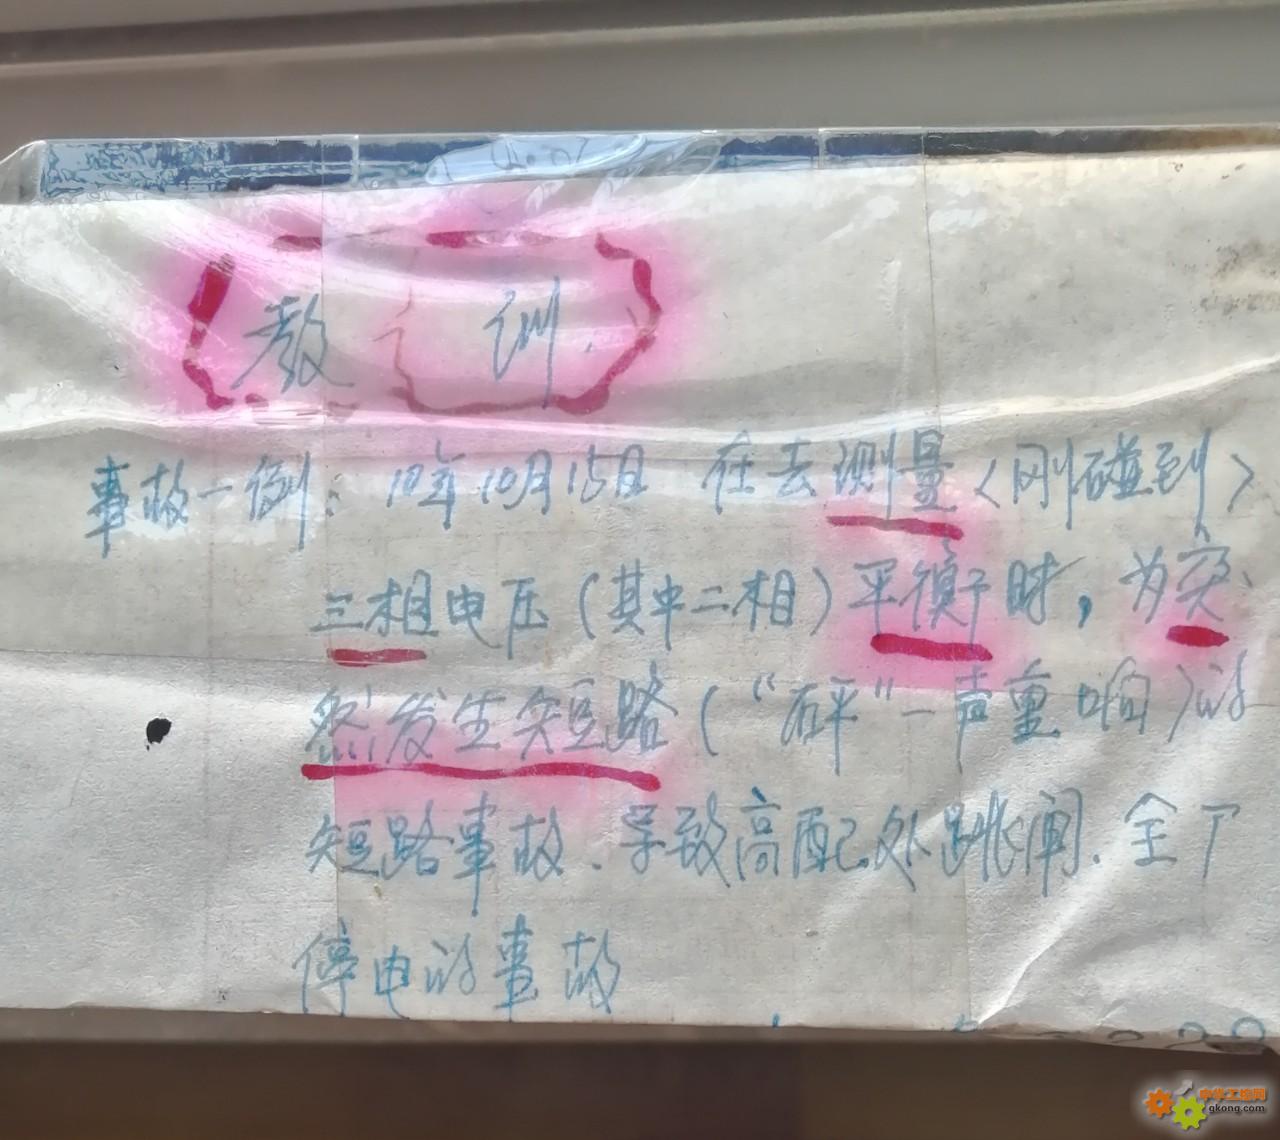 教训.
事故一例: 10年10月15日 在去测量〈刚碰到〉
三相电压(其中二相)平衡时,为突、
然发生短路("砰"一声重响)的
短路事故、导致高配处跳闸、全厂
停电的事故
中华工控网
gkong.com